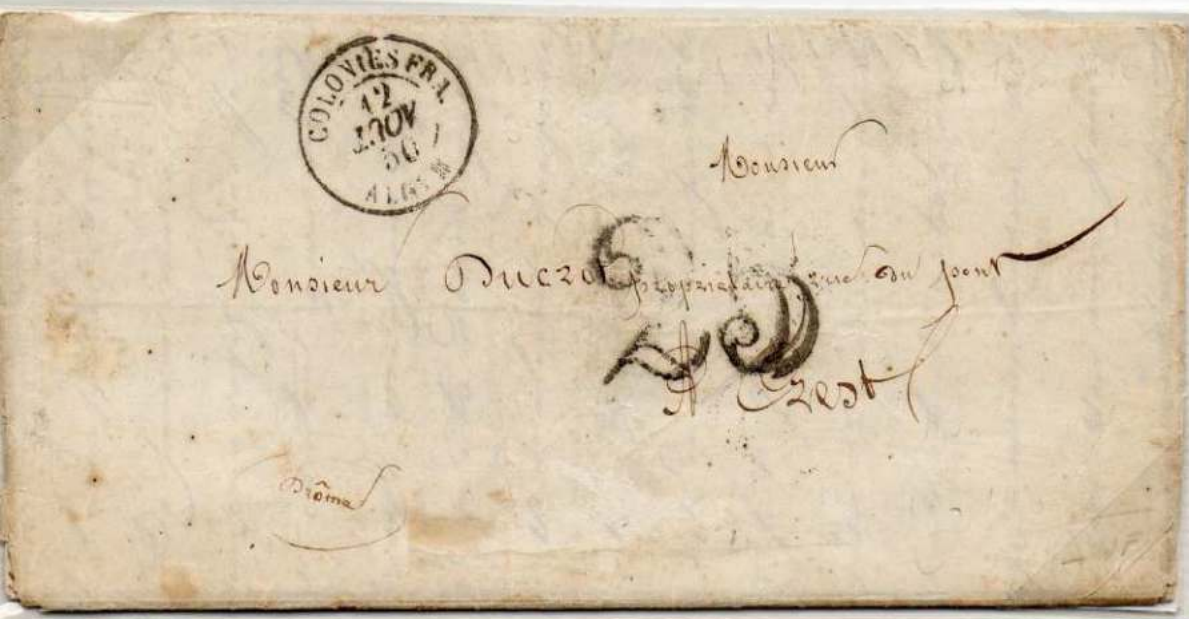 COLONIES FRA.
12
AOUT
50
ALGER
Monsieur
Monsieur Ducros propriétaire rue du pont
25
A Crest
Drôme